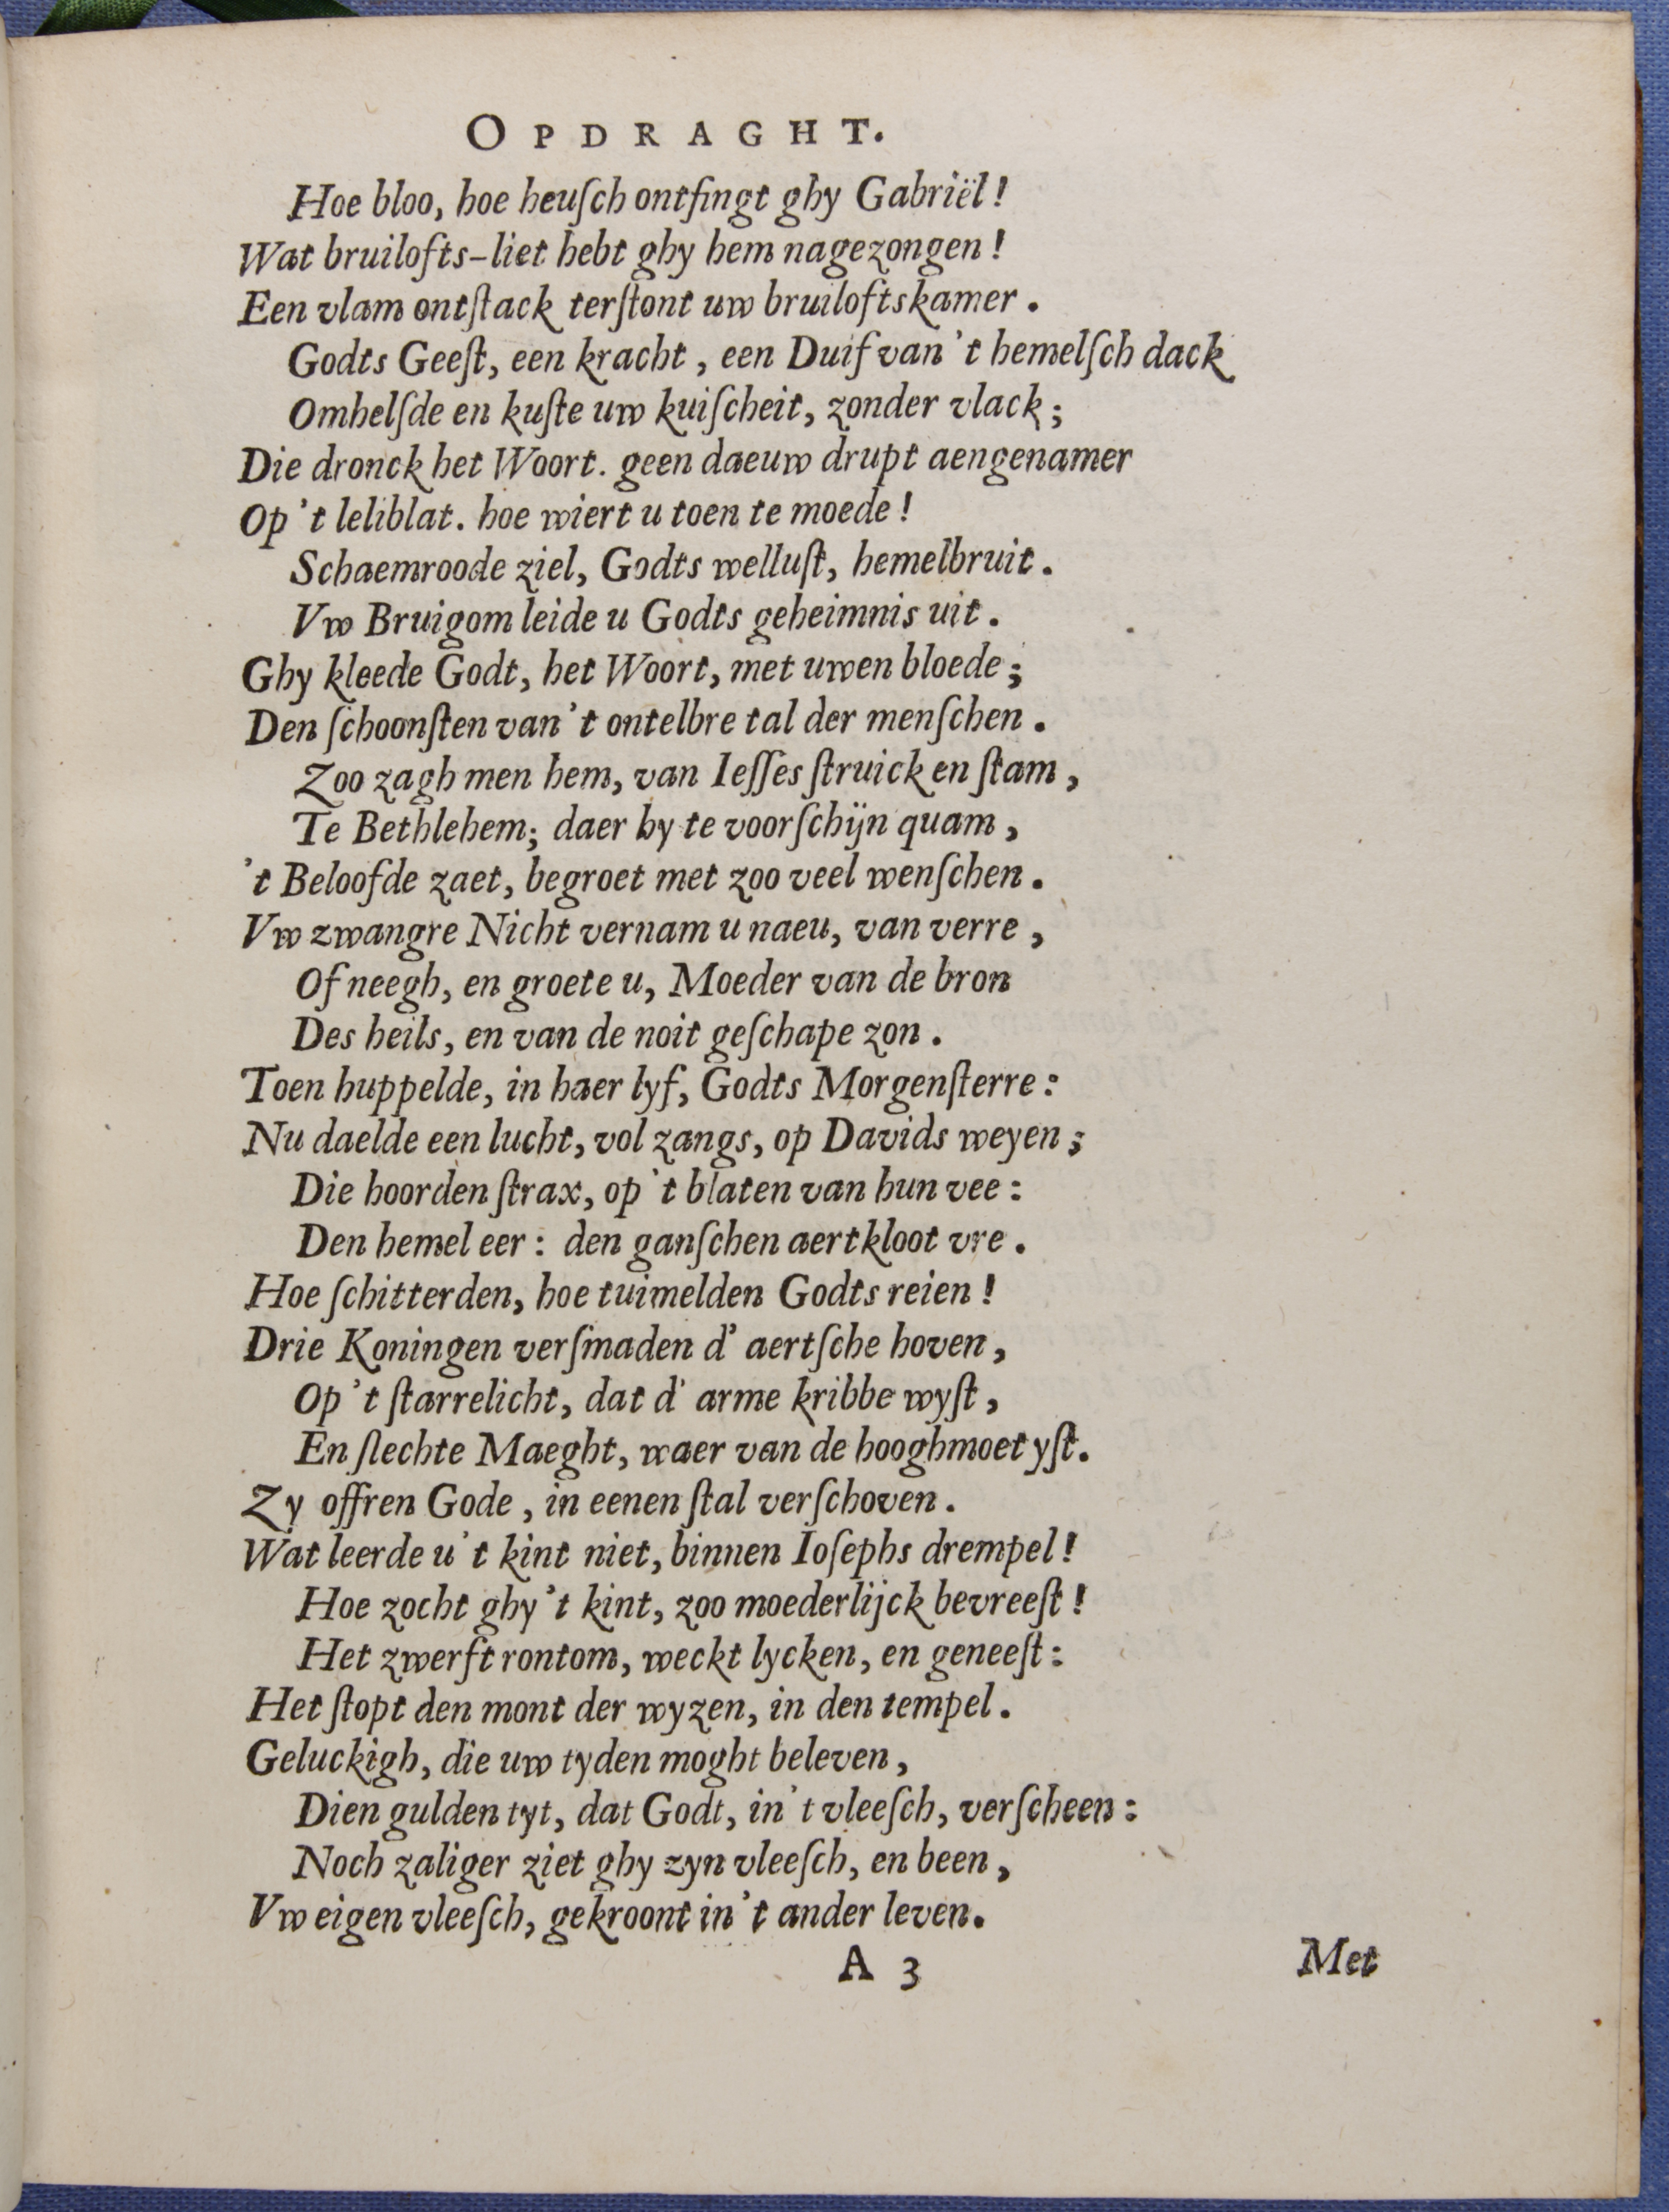 OPDRAGHT.
Hoe bloo, hoe heuſch ontfingt ghy Gabriël!
Wat bruilofts-liet hebt ghy hem nagezongen!
Een vlam ontſtack terſtont uw bruiloftskamer.
Godts Geeſt, een kracht, een Duif van 't hemelſch dack
Omhelſde en kuſte uw kuiſcheit, zonder vlack;
Die dronck het Woort. geen daeuw drupt aengenamer
Op 't leliblat. hoe wiert u toen te moede!
Schaemroode ziel, Godts welluſt, hemelbruit.
Vw Bruigom leide u Godts geheimnis uit.
Ghy kleede Godt, het Woort, met uwen bloede;
Den ſchoonſten van 't ontelbre tal der menſchen.
Zoo zagh men hem, van Ieſſes ſtruick en ſtam,
Te Bethlehem; daer hy te voorſchijn quam,
't Beloofde zaet, begroet met zoo veel wenſchen.
Vw zwangre Nicht vernam u naeu, van verre,
Of neegh, en groete u, Moeder van de bron
Des heils, en van de noit geſchape zon.
Toen huppelde, in haer lyf, Godts Morgenſterre:
Nu daelde een lucht, vol zangs, op Davids weyen;
Die hoorden ſtrax, op 't blaten van hun vee:
Den hemel eer: den ganſchen aertkloot vre.
Hoe ſchitterden, hoe tuimelden Godts reien!
Drie Koningen verſmaden d' aertſche hoven,
Op 't ſtarrelicht, dat d' arme kribbe wyſt,
En ſlechte Maeght, waer van de hooghmoet yſt.
Zy offren Gode, in eenen ſtal verſchoven.
Wat leerde u 't kint niet, binnen Ioſephs drempel!
Hoe zocht ghy 't kint, zoo moederlijck bevreeſt!
Het zwerft rontom, weckt lycken, en geneeſt:
Het ſtopt den mont der wyzen, in den tempel.
Geluckigh, die uw tyden moght beleven,
Dien gulden tyt, dat Godt, in 't vleeſch, verſcheen:
Noch zaliger ziet ghy zyn vleeſch, en been,
Vw eigen vleeſch, gekroont in 't ander leven.
A 3 Met